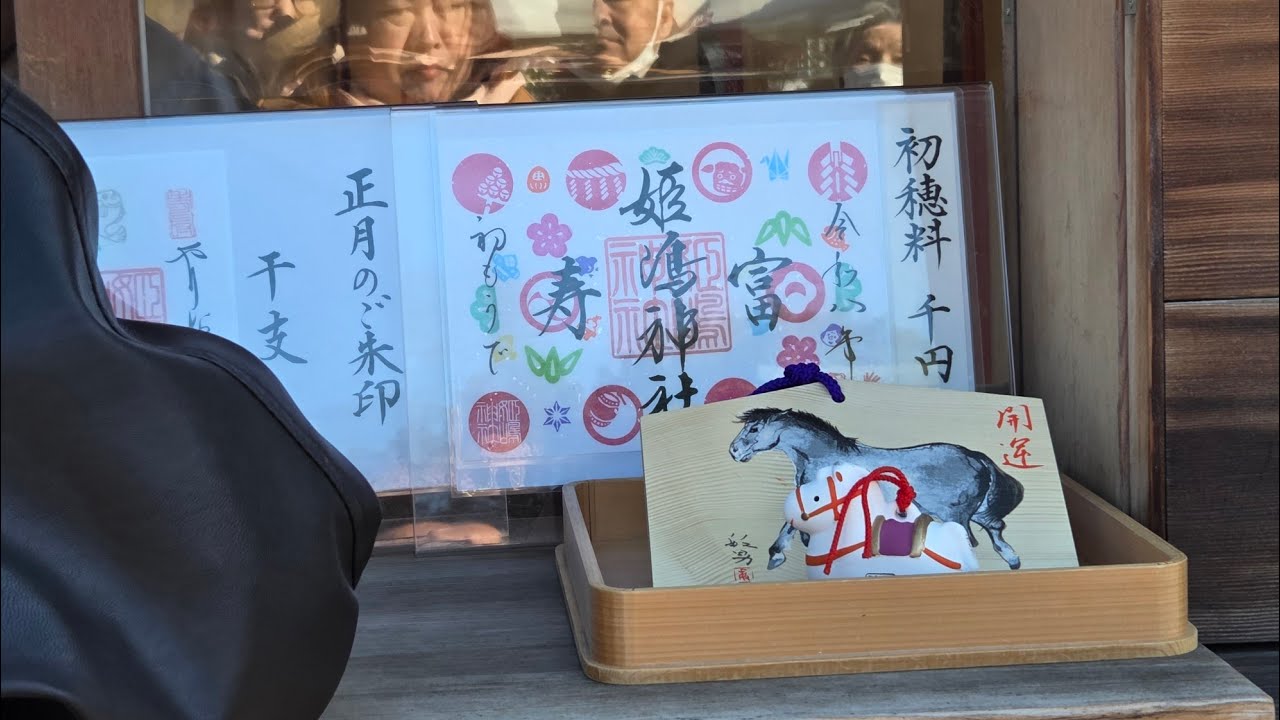 初穂料 千円
令和八年
富
姫嶋神社
寿
初もうで
正月のご来印
干支
開運